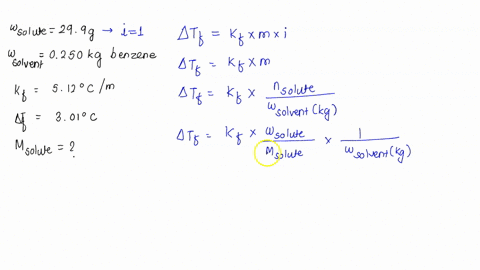 Wsolute = 29.9g → i=1
Wsolvent = 0.250 kg benzene
Kf = 5.12°C/m
Δf = 3.01°C
Msolute = ?
ΔTf = Kf × m × i
ΔTf = Kf × m
ΔTf = Kf × nsolute / Wsolvent(kg)
ΔTf = Kf × Wsolute / Msolute × 1 / Wsolvent(kg)